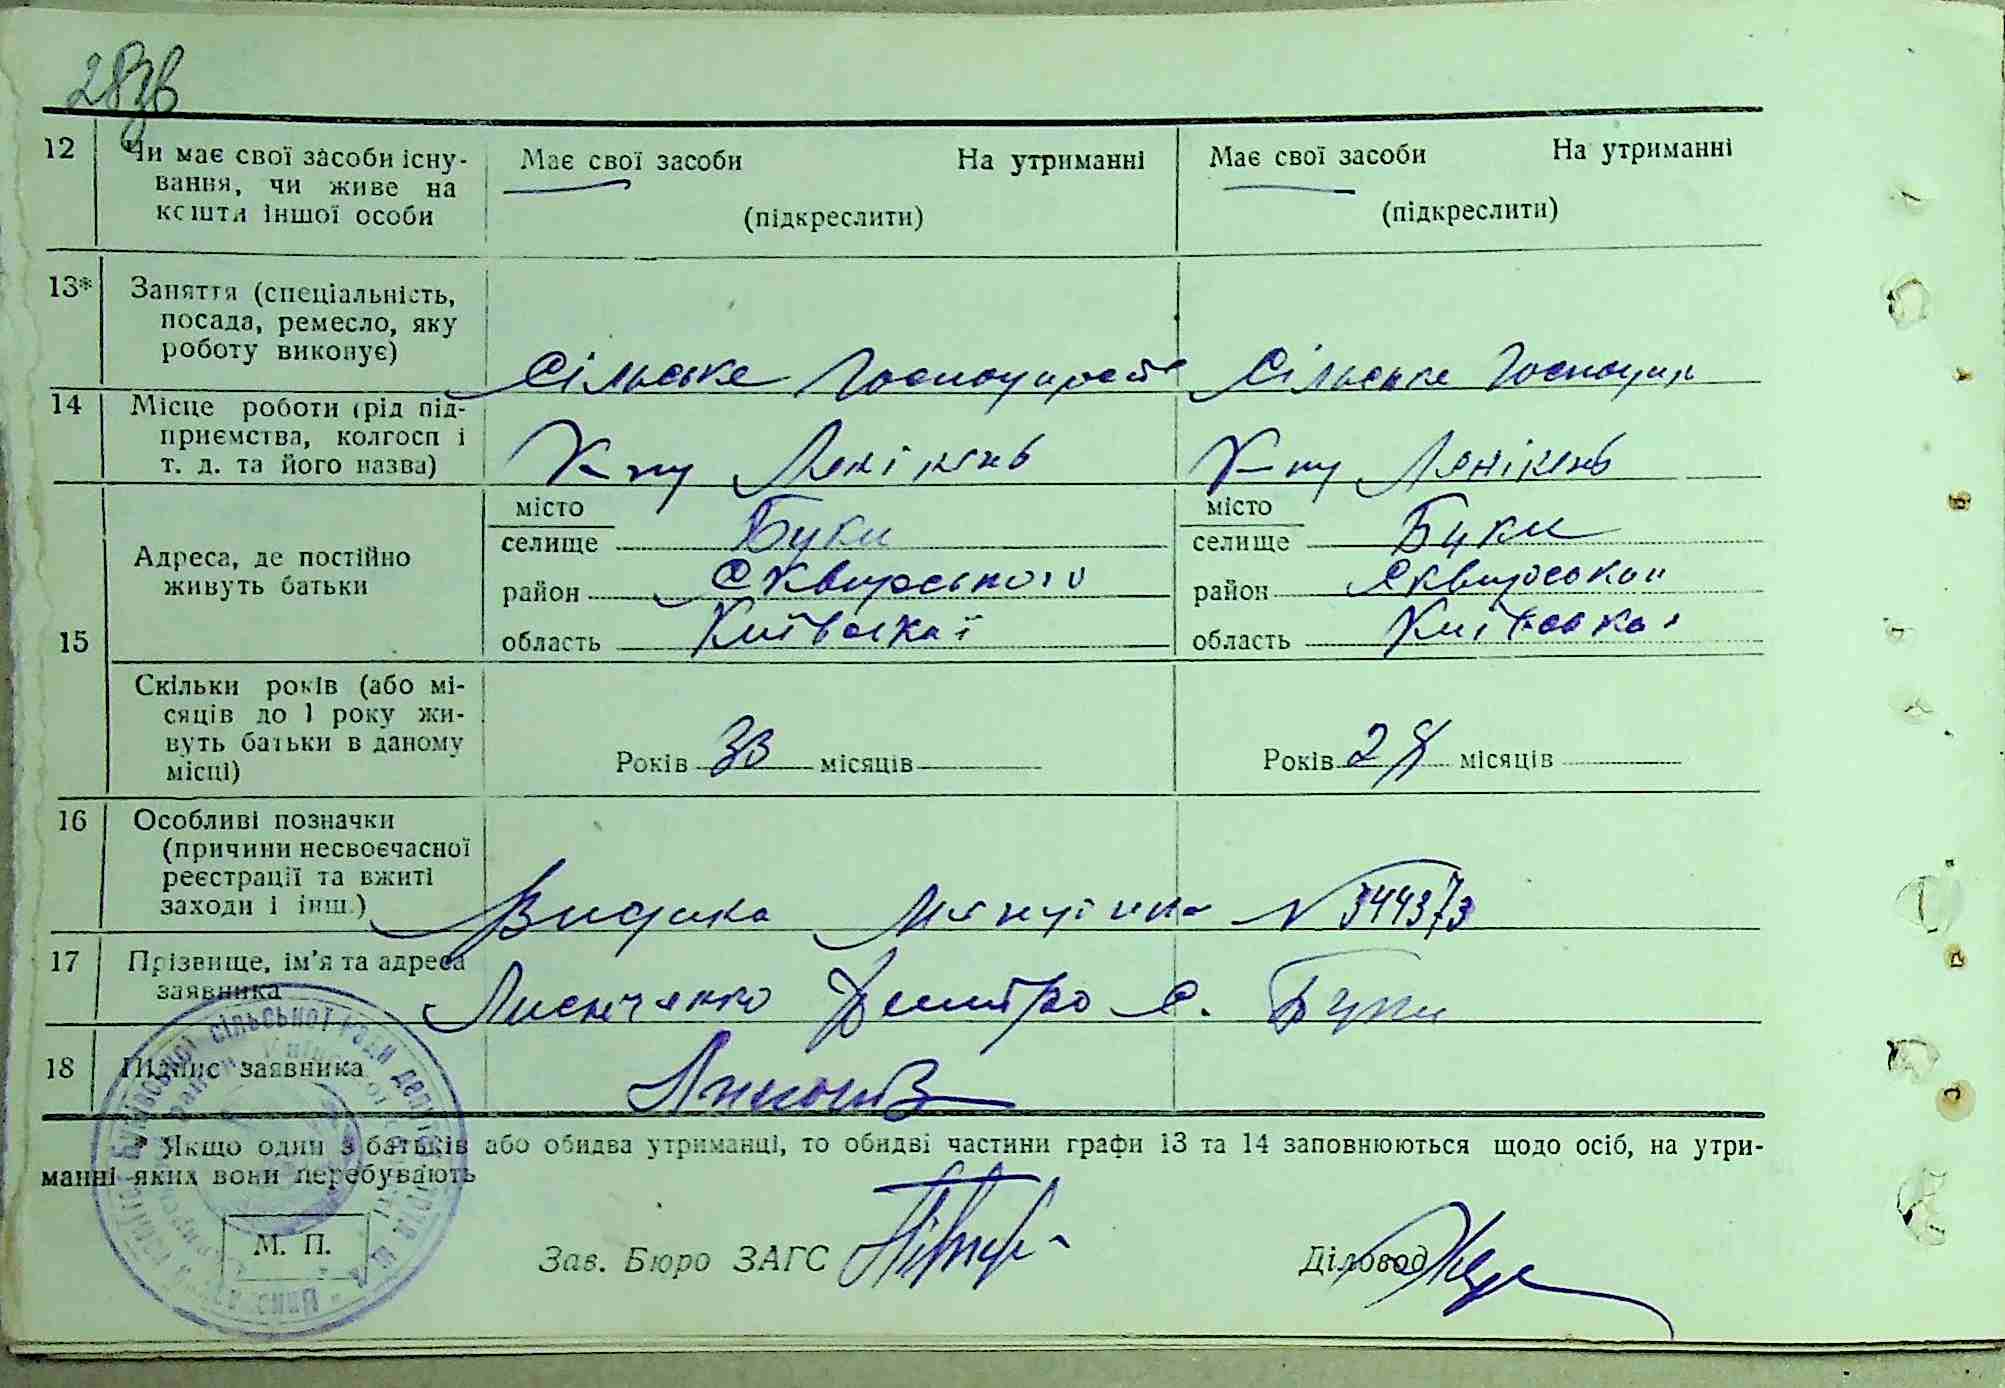 28зв
12 Чи має свої засоби існу-
вання, чи живе на
кошти іншої особи
Має свої засоби На утриманні
(підкреслити)
Має свої засоби На утриманні
(підкреслити)
13* Заняття (спеціальність,
посада, ремесло, яку
роботу виконує)
Сільське Господарств
Сільське Господар
14 Місце роботи (рід під-
приємства, колгосп і
т. д. та його назва)
К-пу
К-пу
15 Адреса, де постійно
живуть батьки
місто
селище Буки
район Сквирського
область Київської
місто
селище Буки
район Сквирської
область Київської
Скільки років (або мі-
сяців до 1 року жи-
вуть батьки в даному
місці)
Років 33 місяців
Років 28 місяців
16 Особливі позначки
(причини несвоєчасної
реєстрації та вжиті
заходи і інш.)
Видана № 344373
17 Прізвище, ім'я та адреса
заявника
Дмитро С. Буки
18 Підпис заявника
* Якщо один з батьків або обидва утриманці, то обидві частини графи 13 та 14 заповнюються щодо осіб, на утри-
манні яких вони перебувають
сільської ради депутатів
М. П.
Зав. Бюро ЗАГС
Діловод